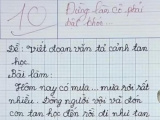 10
Đừng lần cố phải
bật khóc
Đề: Viết đoạn văn tả cảnh tan
học.
Bài làm:
Hôm nay có mưa... mưa rơi rất
nhiều. Dòng người vội vã đón
con tan học đến rồi đi như tan